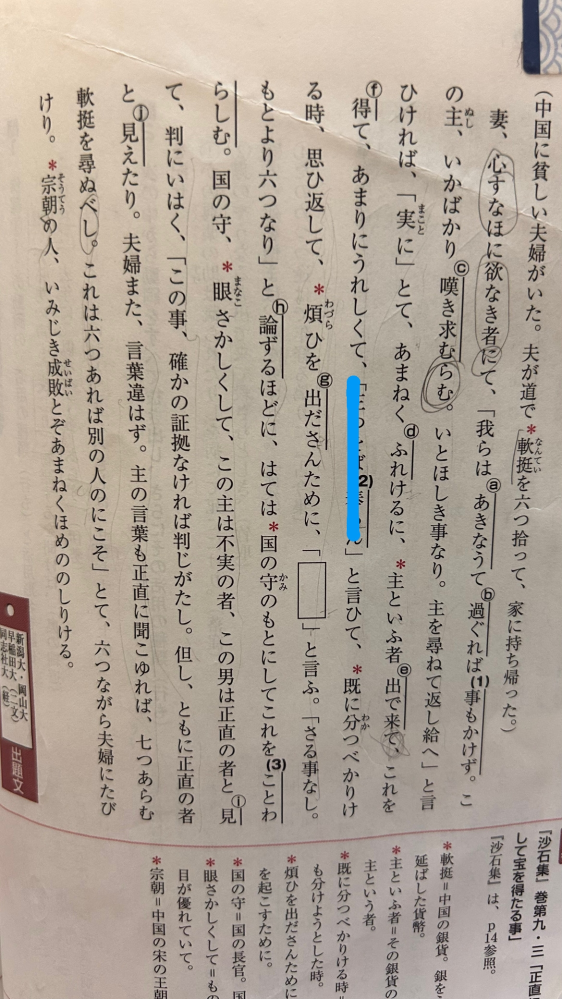 (中国に貧しい夫婦がいた。夫が道で*軟挺(なんてい)を六つ拾って、家に持ち帰った。)
妻、心すなほに欲なき者にて、「我らはⓐあきなうてⓑ過ぐれば(1)事もかけず。こ
の主(ぬし)、いかばかりⓒ嘆き求むらむ。いとほしき事なり。主を尋ねて返し給へ」と言
ひければ、「実(まこと)に」とて、あまねくⓓふれけるに、*主といふ者ⓔ出で来て、これを
ⓕ得て、あまりにうれしくて、「」と言ひて、*既に分(わか)つべかりけ
る時、思ひ返して、*煩(わづら)ひをⓖ出ださんために、「」と言ふ。「さる事なし。
もとより六つなり」とⓗ論ずるほどに、はては*国の守(かみ)のもとにしてこれを(3)ことわ
らしむ。国の守、*眼(まなこ)さかしくして、この主は不実の者、この男は正直の者とⓘ見
て、判にいはく、「この事、確かの証拠なければ判じがたし。但し、ともに正直の者
とⓙ見えたり。夫婦また、言葉違はず。主の言葉も正直に聞こゆれば、七つあらむ
軟挺を尋ぬべし。これは六つあれば別の人のにこそ」とて、六つながら夫婦にたび
けり。*宗朝(そうてう)の人、いみじき成敗(せいばい)とぞあまねくほめののしりける。
新潟大・岡山大
早稲田大(二文)
同志社大(経)
出題文
『沙石集』巻第九・三「正直
して宝を得たる事」
『沙石集』は、p14参照。
*軟挺=中国の銀貨。銀を
延ばした貨幣。
*主といふ者=その銀貨の
主という者。
*既に分つべかりける時=
も分けようとした時。
*煩ひを出ださんために
を起こすために。
*国の守=国の長官。国
*眼さかしくして=もの
目が優れていて。
*宗朝=中国の宋の王朝